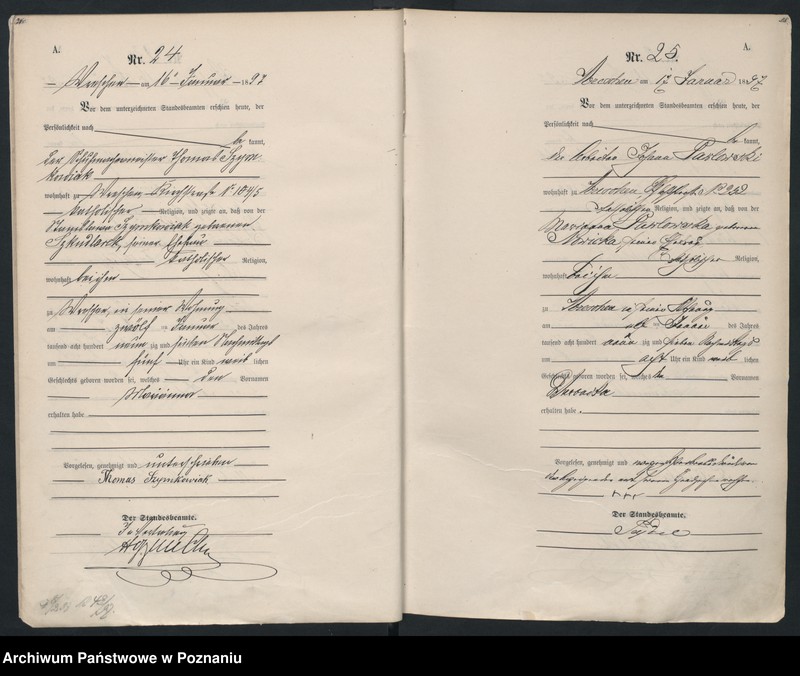 A.
Nr. 24
Wreschen am 16 Januar 1897
Vor dem unterzeichneten Standesbeamten erschien heute, der
Persönlichkeit nach
be kannt,
der Schuhmachermeister Thomas Szym
kowiak
wohnhaft zu Wreschen
katholischer Religion, und zeigte an, daß von der
Szymkowiak geborenen
Szkudlarek, seiner Ehefrau
katholischer Religion,
wohnhaft bei ihm
zu Wreschen, in seiner Wohnung
am zwölf ten Januar des Jahres
tausend acht hundert neun zig und sieben
um fünf Uhr ein Kind weib lichen
Geschlechts geboren worden sei, welches den Vornamen
Marianna
erhalten habe
Vorgelesen, genehmigt und unterschrieben
Thomas Szymkowiak
Der Standesbeamte.
In Vertretung
A.
Nr. 25.
Wreschen am 17 Januar 1897
Vor dem unterzeichneten Standesbeamten erschien heute, der
Persönlichkeit nach
be kannt,
der Arbeiter Pawlowski
wohnhaft zu Wreschen
katholischer Religion, und zeigte an, daß von der
Pawlowska geborenen
Nowicka seiner Ehefrau
katholischer Religion,
wohnhaft bei ihm
zu Wreschen in seiner Wohnung
am elf ten Januar des Jahres
tausend acht hundert neun zig und sieben
um acht Uhr ein Kind weib lichen
Geschlechts geboren worden sei, welches den Vornamen
erhalten habe.
Vorgelesen, genehmigt und wegen
Der Standesbeamte.
Archiwum Państwowe w Poznaniu